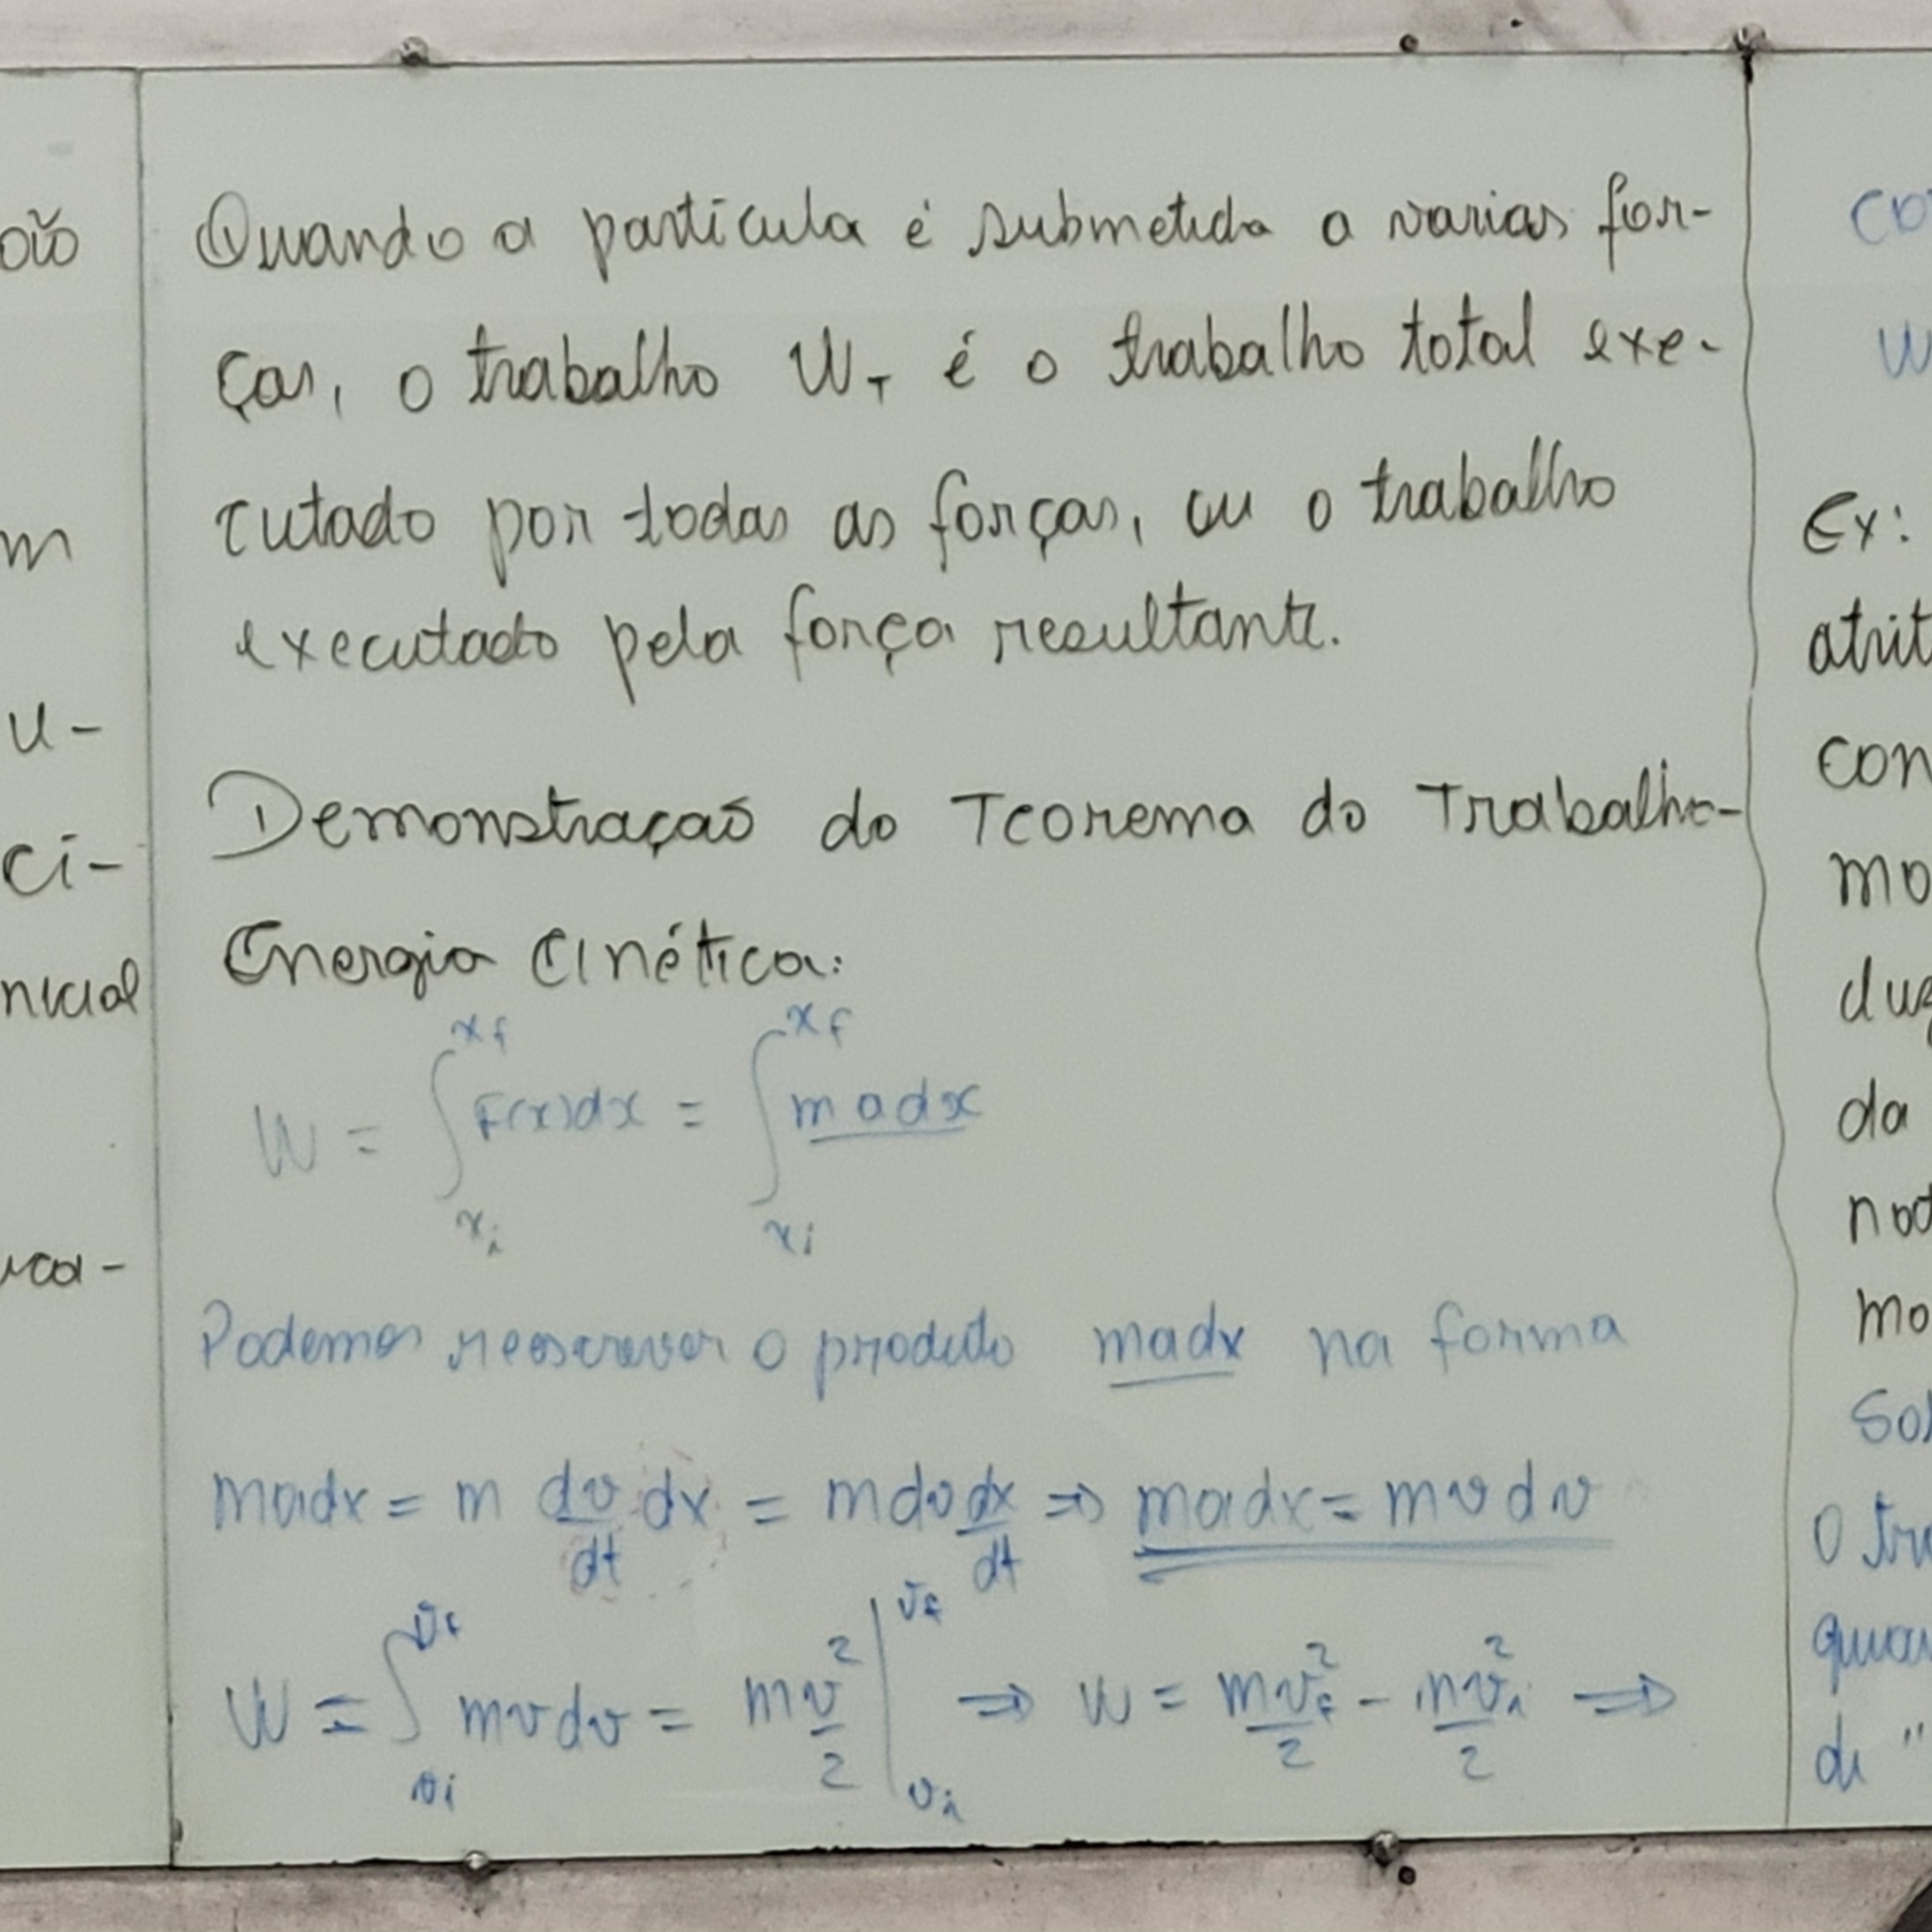 Quando a partícula é submetida a varias for-
ças, o trabalho W_T é o trabalho total exe-
cutado por todas as forças, ou o trabalho
executado pela força resultante.
Demonstração do Teorema do Trabalho-
Energia Cinética:
W = ∫_{x_i}^{x_f} F(x)dx = ∫_{x_i}^{x_f} madx
Podemos reescrever o produto madx na forma
madx = m dv/dt dx = mdv dx/dt ⇒ madx = mvdv
W = ∫_{v_i}^{v_f} mvdv = mv²/2 |_{v_i}^{v_f} ⇒ W = mv_f²/2 - mv_i²/2 ⇒
m
u-
ci-
nicial
Ex:
atrit
con
mo
da
mo
O tra
de "